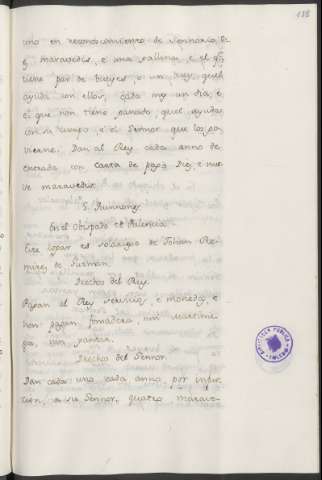 188
uno en reconoscimiento de Sennorio, de
maravedis, e una gallina; e el q̃
tiene par de bueyes o un Buey, quel
ayuda con ellos, cada mes un dia, e
el que non tiene ganado, quel ayuda
con su cuerpo, e el Sennor que los go
vierne. Dan al Rey cada anno de
entrada con carta de pago Diez, e nue
ve maravedis.
S.
En el Obispado de Palencia.
Este logar es solariego de Johan Ra
mirez de Guzman.
Derechos del Rey.
Pagan al Rey servicios, e monedas, e
non pagan fonsadera, nin martinie
ga, nin yantar.
Derechos del Sennor.
Dan cada uno cada anno por infur
cion, a su Sennor, quatro marave-
BIBLIOTECA PUBLICA